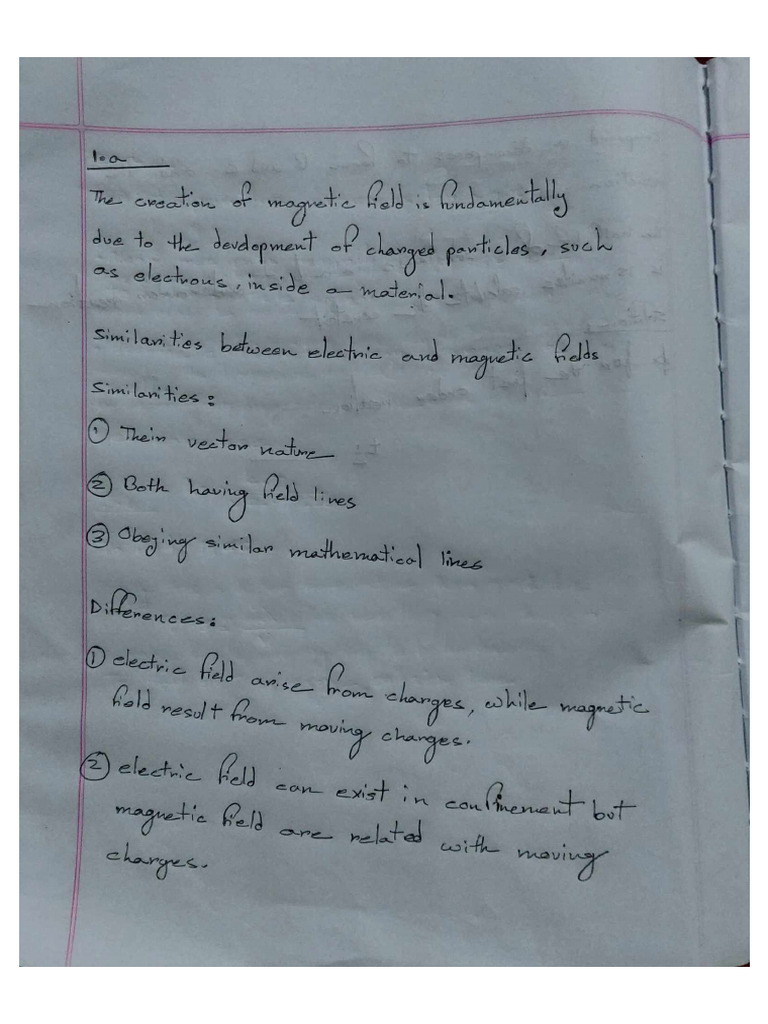 1.a
The creation of magnetic field is fundamentally
due to the development of charged particles, such
as electrous, inside a material.
Similarities between electric and magnetic fields
Similarities:
① Their vector nature
② Both having field lines
③ Obejing similar mathematical lines
Differences:
① electric field arise from charges, while magnetic
field result from moving charges.
② electric field can exist in confinement but
magnetic field are related with moving
charges.